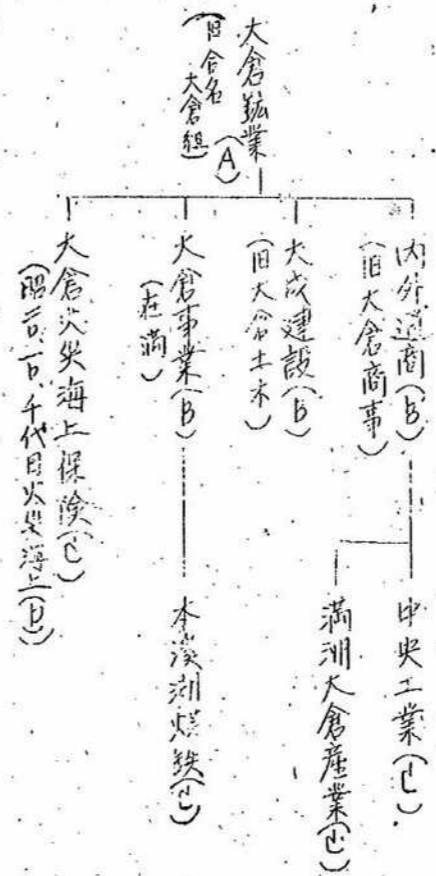 大倉鉱業(A)
(旧合名
大倉組)
内外通商(B)
(旧大倉商事)
中央工業(C)
満洲大倉産業(C)
大成建設(B)
(旧大倉土木)
大倉事業(B)
(在満)
本渓湖煤鉄(C)
大倉火災海上保険(C)
千代田火災海上(D)